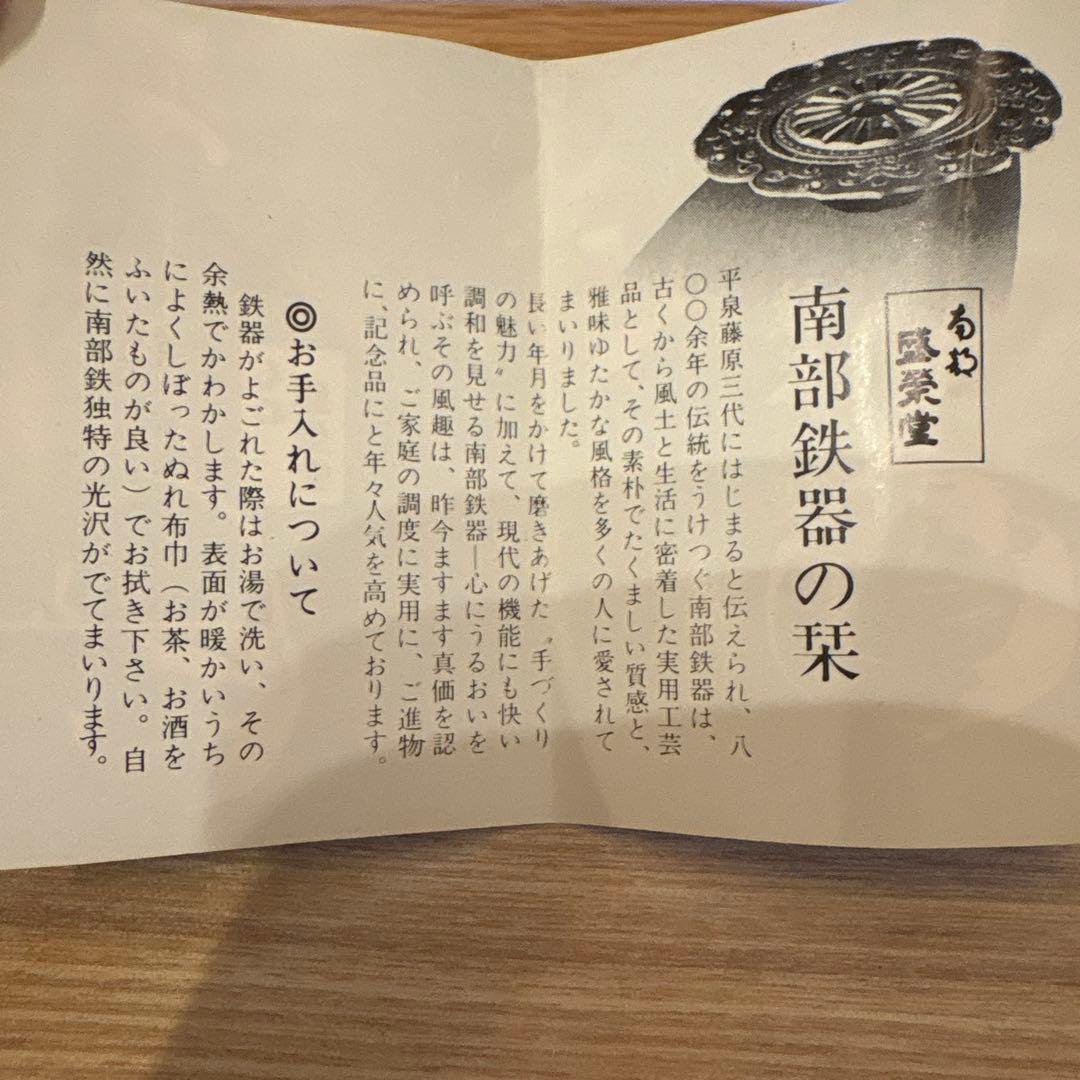 南部
盛榮堂
南部鉄器の栞
平泉藤原三代にはじまると伝えられ、八
〇〇余年の伝統をうけつぐ南部鉄器は、
古くから風土と生活に密着した実用工芸
品として、その素朴でたくましい質感と、
雅味ゆたかな風格を多くの人に愛されて
まいりました。
長い年月をかけて磨きあげた〝手づくり
の魅力〟に加えて、現代の機能にも快い
調和を見せる南部鉄器―心にうるおいを
呼ぶその風趣は、昨今ますます真価を認
められ、ご家庭の調度に実用に、ご進物
に、記念品にと年々人気を高めております。
◎お手入れについて
鉄器がよごれた際はお湯で洗い、その
余熱でかわかします。表面が暖かいうち
によくしぼったぬれ布巾（お茶、お酒を
ふいたものが良い）でお拭き下さい。自
然に南部鉄独特の光沢がでてまいります。